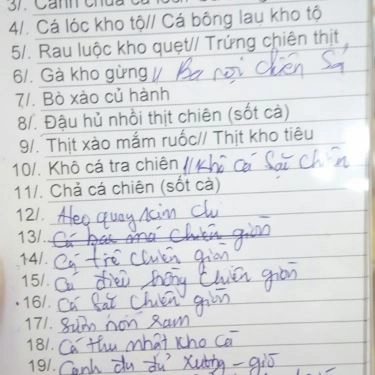 3/. Canh chua cá
4/. Cá lóc kho tộ// Cá bông lau kho tộ
5/. Rau luộc kho quẹt// Trứng chiên thịt
6/. Gà kho gừng // Ba rọi chiên sả
7/. Bò xào củ hành
8/. Đậu hủ nhồi thịt chiên (sốt cà)
9/. Thịt xào mắm ruốc// Thịt kho tiêu
10/. Khô cá tra chiên // Khô cá sặc chiên
11/. Chả cá chiên (sốt cà)
12/. Heo quay kim chi
13/. Cá hai má chiên giòn
14/. Cá trê chiên giòn
15/. Cá diêu hồng chiên giòn
16/. Cá sặc chiên giòn
17/. Sườn non ram
18/. Cá thu nhật kho cà
19/. Canh đu đủ xương - giò